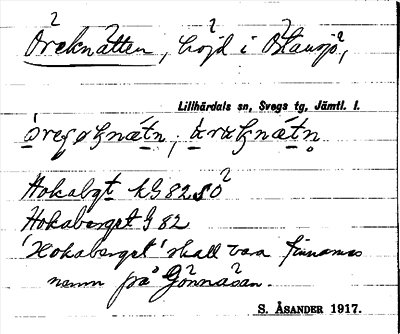 Öreknätten, höjd i Östansjö,
Lillhärdals sn, Svegs tg, Jämtl. l.
Hokabgt kG 82 SO
Hokaberget G 82
'Hokaberget' skall vara finnarnas
namn på Gönnåsan.
S. ÅSANDER 1917.